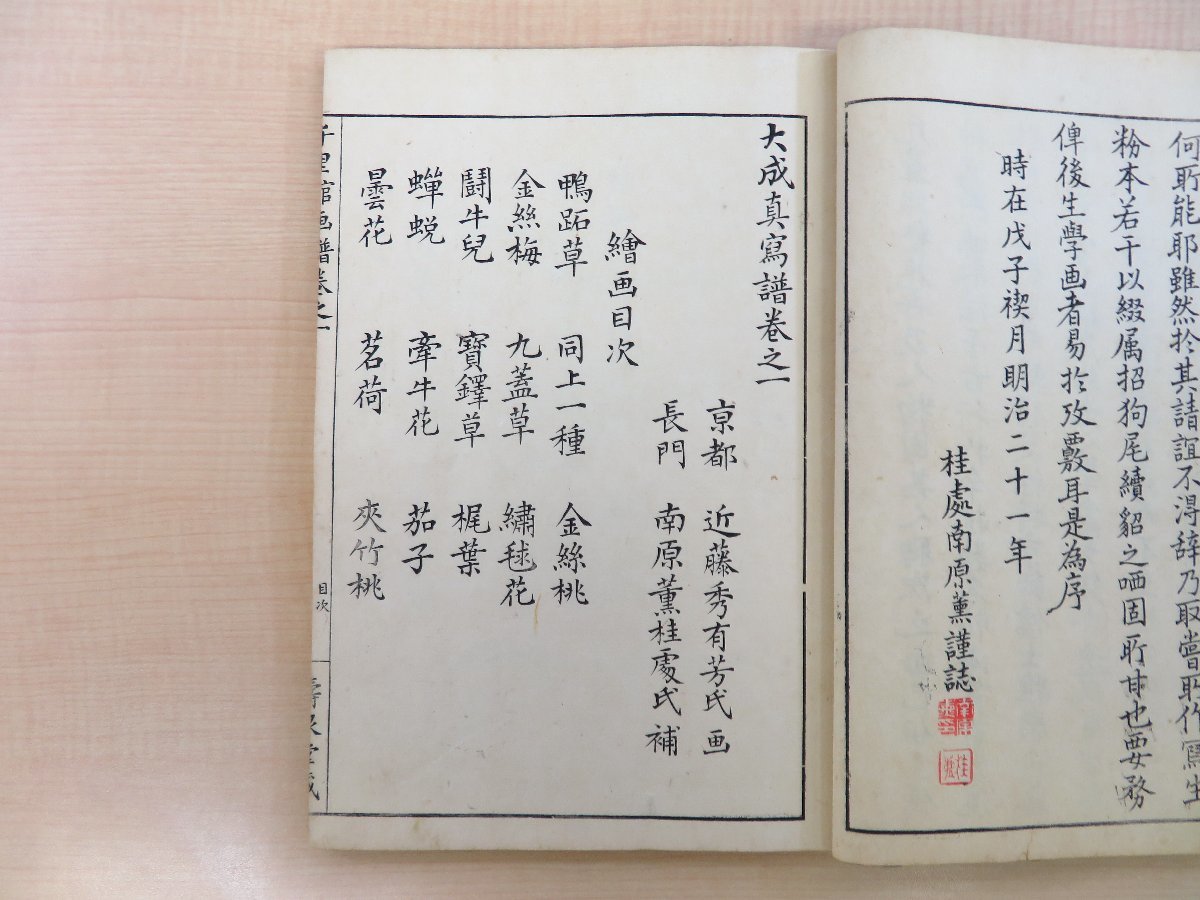 何所能耶雖然於其請誼不得辞乃取嘗所作冩生
粉本若干以綴属招狗尾續貂之哂固所甘也要務
俾後生學画者易於攷覈耳是為序
時在戊子禊月明治二十一年
桂處南原薫謹誌
大成真寫譜巻之一
亰都 近藤秀有芳氏画
長門 南原薫桂處氏補
繪画目次
鴨跖草 同上一種 金絲桃
金絲梅 九蓋草 繡毬花
鬪牛兒 寶鐸草 梶葉
蟬蛻 牽牛花 茄子
曇花 茗荷 夾竹桃
千里館画譜巻之一
目次